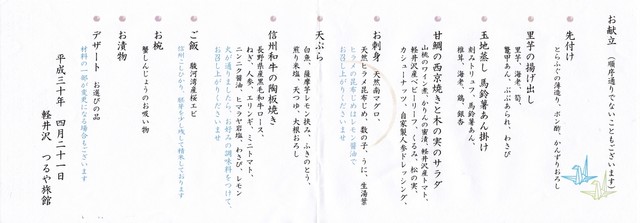 お献立 (順序通りでないこともございます)
先付け
とらふぐの薄造り、ポン酢、かんずりおろし
里芋の揚げ出し
里芋、海老、筍、
鼈甲あん、ぶぶあられ、わさび
玉地蒸し 馬鈴薯あん掛け
刻みトリュフ、馬鈴薯あん、
椎茸、海老、鶏、銀杏
甘鯛の西京焼きと木の実のサラダ
山桃のワイン煮、かりんの蜜漬、軽井沢産トマト、
軽井沢産ベビーリーフ、くるみ、松の実、
カシューナッツ、自家製人参ドレッシング、
お刺身 天然南マグロ、
天然ヒラメ昆布じめ、数の子、うに、生湯葉
ヒラメの昆布じめはレモン醤油で
お召し上がりくださいませ
天ぷら
白魚、薩摩芋レモン挟み、ふきのとう、
煎り米塩、天つゆ、大根おろし
信州和牛の陶板焼き
長野県産黒毛和牛ロース、
ねぎ、人参、エリンギ、ミニトマト、
ニンニク醤油、ヒマラヤ岩塩、わさび、レモン
火が通りましたら、お好みの調味料をつけて、
お召し上がりくださいませ
ご飯 駿河湾産桜エビ
信州こしひかり、胚芽を少し残して精米しております
お椀
蟹しんじょうのお吸い物
お漬物
デザート お選びの品
材料の一部が変更となる場合もございます
平成三十年 四月二十一日
軽井沢 つるや旅館